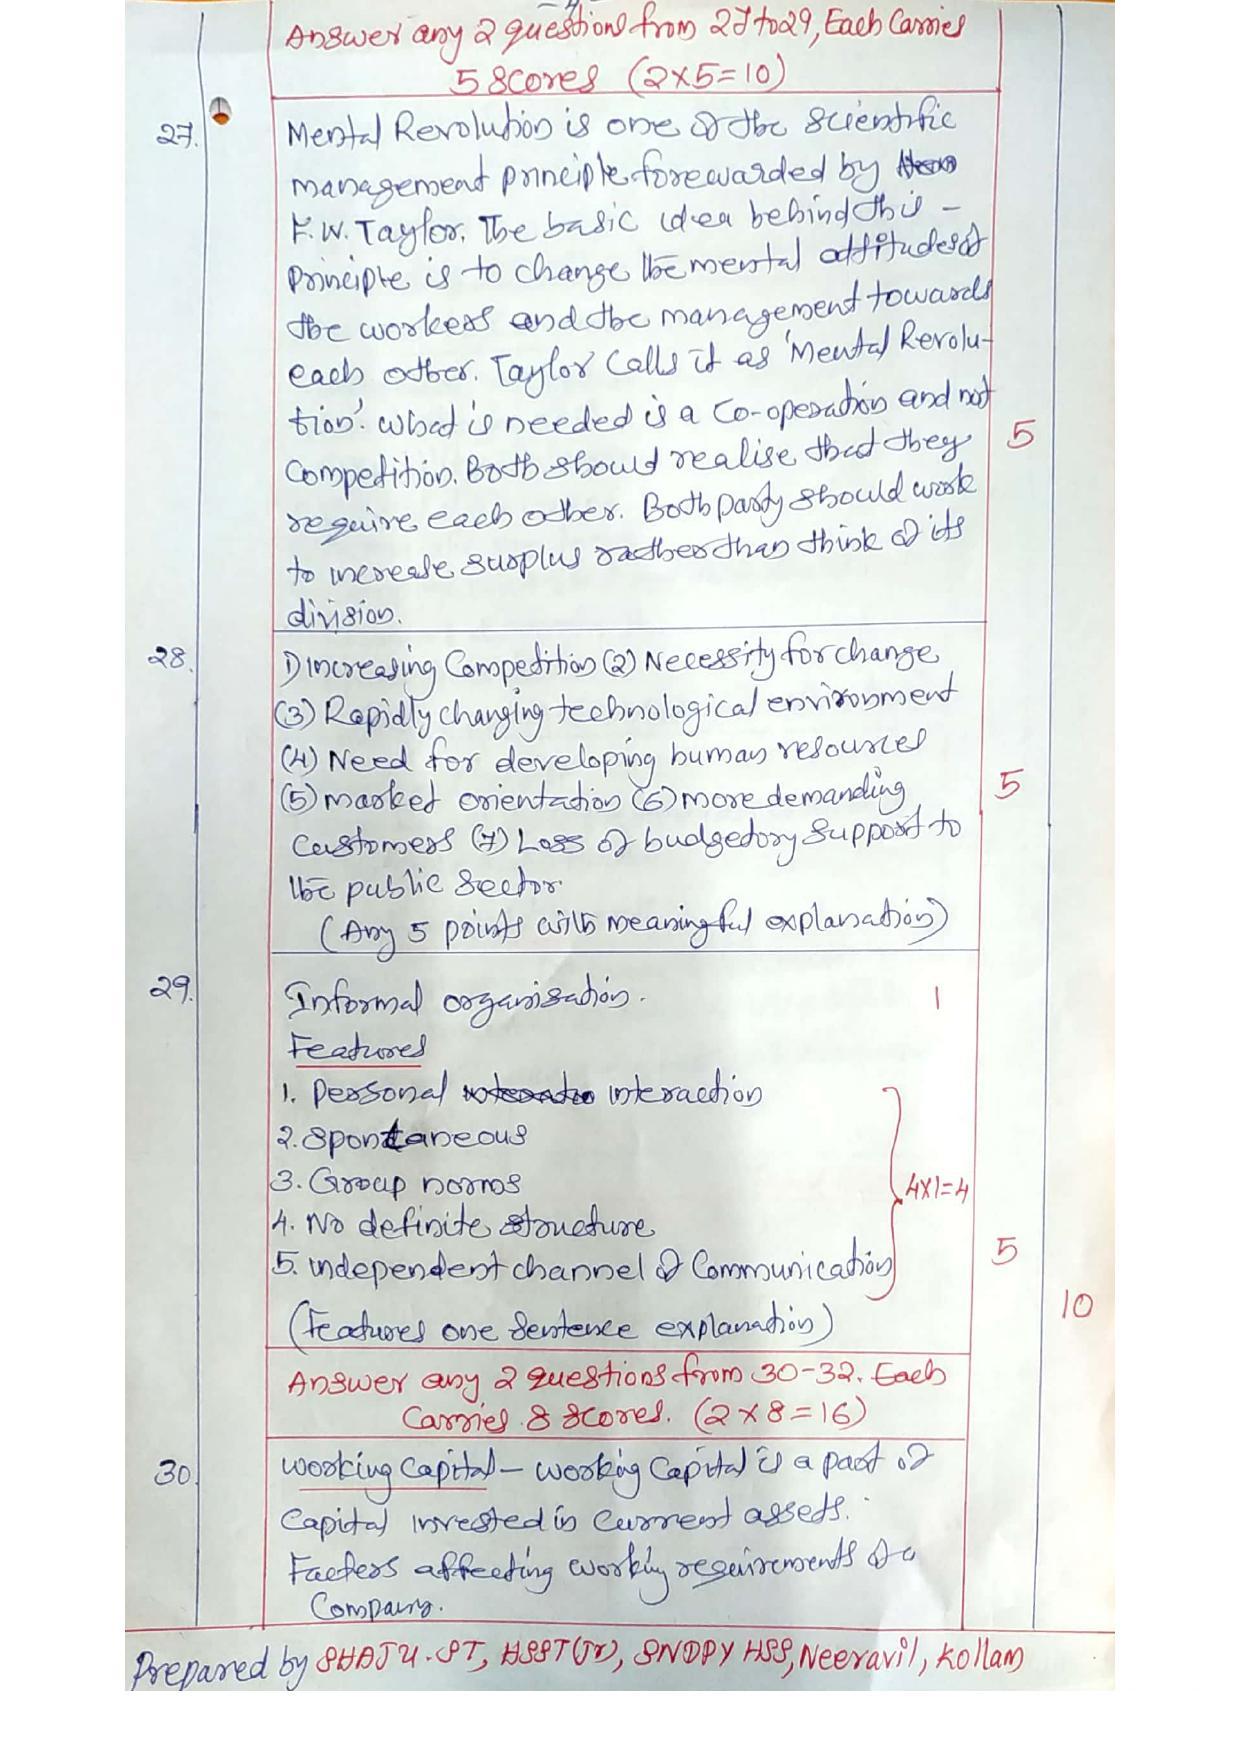 Answer any 2 questions from 27 to 29, Each Carries
5 Scores (2x5=10)
27. Mental Revolution is one of the Scientific
management principle forewarded by
F.W. Taylor. The basic idea behind this -
principle is to change the mental attitudes of
the workers and the management towards
each other. Taylor Calls it as 'Mental Revolu-
tion'. What is needed is a Co-operation and not
Competition. Both should realise that they
require each other. Both party should work
to increase surplus rather than think of its
division.
5
28. 1) Increasing Competition (2) Necessity for change
(3) Rapidly changing technological environment
(4) Need for developing human resources
(5) market orientation (6) more demanding
Customers (7) Loss of budgetory Support to
the public Sector.
(Any 5 points with meaningful explanation)
5
29. Informal organisation. 1
Features
1. Personal interaction
2. Spontaneous
3. Group norms
4x1=4
4. No definite structure
5. independent channel of Communication
5
(Features one Sentence explanation)
10
Answer any 2 questions from 30-32. Each
Carries 8 Scores. (2x8=16)
30. Working Capital - Working Capital is a part of
Capital invested in Current assets.
Facters affecting working requirements of a
Company.
Prepared by SHAJU.ST, HSST(Jr), SNDPY HSS, Neeravil, Kollam